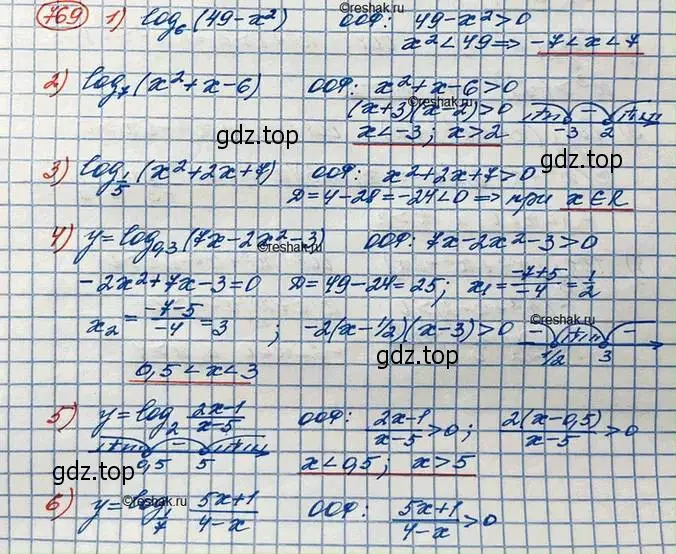 769 1) log₆(49-x²) ООФ: 49-x²>0
©reshak.ru
x²<49 => -7<x<7
2) log₇(x²+x-6) ООФ: x²+x-6>0
(x+3)(x-2)>0
gdz.top
x<-3; x>2 -3 2
gdz.top
3) log_{1/5}(x²+2x+7) ООФ: x²+2x+7>0
D=4-28=-24<0 => при x∈R
gdz.top
4) y=log_{0,3}(7x-2x²-3) ООФ: 7x-2x²-3>0
©reshak.ru
-2x²+7x-3=0 D=49-24=25; x₁=\frac{-7+5}{-4}=\frac{1}{2}
x₂=\frac{-7-5}{-4}=3; -2(x-1/2)(x-3)>0
©reshak.ru
1/2 3
gdz.top
0,5<x<3
gdz.top
5) y=log₂\frac{2x-1}{x-5} ООФ: \frac{2x-1}{x-5}>0; \frac{2(x-0,5)}{x-5}>0
0,5 5 x<0,5; x>5
gdz.top
6) y=log_{1/7}\frac{5x+1}{4-x} ООФ: \frac{5x+1}{4-x}>0
©reshak.ru
gdz.top